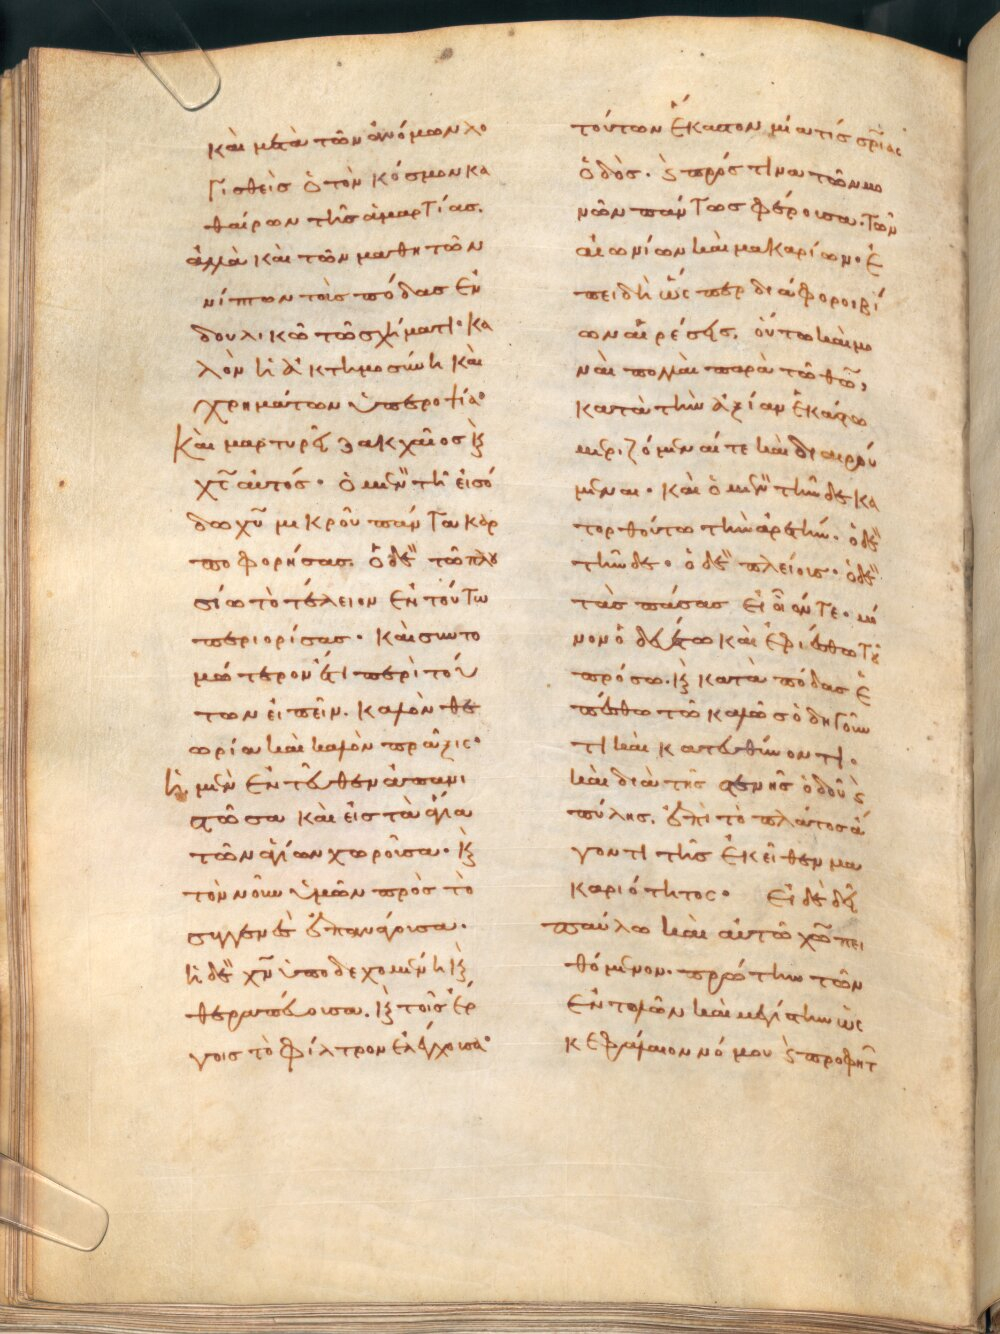 καὶ μετὰ τῶν ἀνόμων λο
γισθεὶς ὁ τὸν κόσμον κα
θαίρων τῆς ἁμαρτίας.
ἀλλὰ καὶ τῶν μαθητῶν
νίπτων τοὺς πόδας ἐν
δουλικῶ τῶ σχήματι· κα
λὸν ἡ ἀκτημοσύνη καὶ
χρημάτων ὑπεροψία·
καὶ μαρτυρεῖ ζακχαῖος κ(αὶ)
χ̅ς̅ αὐτός· ὁ μὲν τῆ εἰσό
δω χ̅υ̅ μικροῦ πάντα καρ
ποφορήσας. ὁ δὲ τῶ πλου
σίω τὸ τέλειον ἐν τούτω
περιορίσας· καὶ συντο
μώτερον ἔτι περὶ τού
των εἰπεῖν. καλὸν θε
ωρία καὶ καλὸν πρᾶξις·
ἡ μὲν ἐντεῦθεν ἀπανι
στῶσα καὶ εἰς τὰ ἅγια
τῶν ἁγίων χωροῦσα· κ(αὶ)
τὸν νοῦν ἡμῶν πρὸς τὸ
συγγενὲς ἐπανάγουσα.
ἡ δὲ χ̅ν̅ ὑποδεχομένη κ(αὶ)
θεραπεύουσα. κ(αὶ) τοῖς ἔρ
γοις τὸ φίλτρον ἐλέγχουσα·
τούτων ἕκαστον μία τίς σ̅ρ̅ίας
ὁδὸς. κ(αὶ) πρός τινα τῶν μο
νῶν πάντως φέρουσα. τῶν
αἰωνίων καὶ μακαρίων· ἐ
πειδὴ ὥσπερ διάφοροι βί
ων αἱρέσεις, οὕτω καὶ μο
ναὶ πολλαὶ παρὰ τῶ θ̅ω̅,
κατὰ τὴν ἀξίαν ἑκάστω
μεριζόμεναί τε καὶ διαιρού
μεναι· καὶ ὁ μὲν τήνδε κα
τορθούτω τὴν ἀρετήν. ὁ δὲ
τήνδε· ὁ δὲ πλείους· ὁ δὲ
τὰς πάσας εἰ οἷόν τε· μό
νον ὁδευέτω καὶ ἐφιέσθω τοῦ
πρόσω. κ(αὶ) κατὰ πόδας ἑ
πέσθω τῶ καλῶς ὁδηγοῦν
τι καὶ κατευθύνοντι.
καὶ διὰ τῆς στενῆς ὁδοῦ κ(αὶ)
πύλης, ἐπὶ τὸ πλάτος ἄ
γοντι τῆς ἐκεῖθεν μα
καριότητος· εἰ δὲ δεῖ
παύλω καὶ αὐτῶ χ̅ω̅ πει
θόμενον. πρώτην τῶν
ἐντολῶν καὶ μεγίστην ὡς
κεφάλαιον νόμου κ(αὶ) προφητ